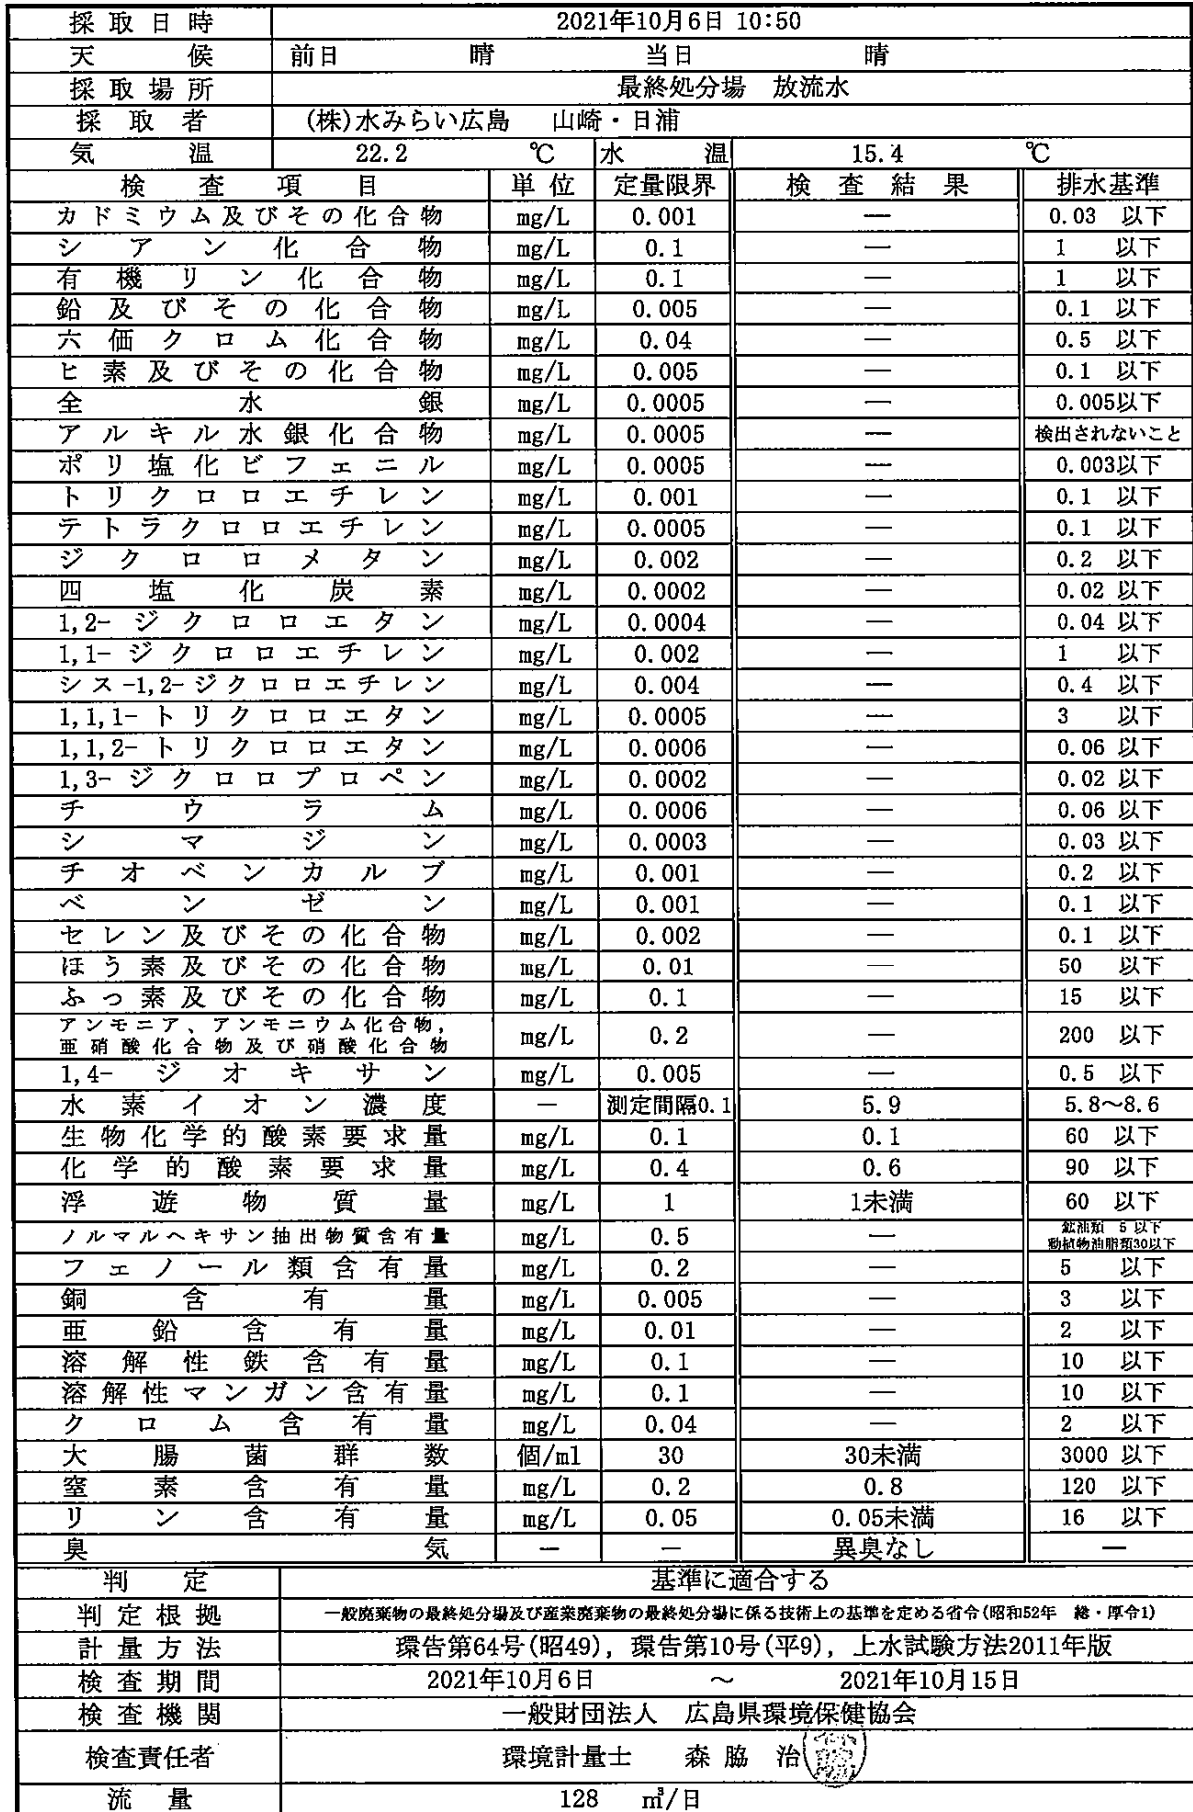 採取日時 2021年10月6日 10:50
天候 前日 晴 当日 晴
採取場所 最終処分場 放流水
採取者 (株)水みらい広島 山崎・日浦
気温 22.2 ℃ 水温 15.4 ℃
検査項目 単位 定量限界 検査結果 排水基準
カドミウム及びその化合物 mg/L 0.001 — 0.03 以下
シアン化合物 mg/L 0.1 — 1 以下
有機リン化合物 mg/L 0.1 — 1 以下
鉛及びその化合物 mg/L 0.005 — 0.1 以下
六価クロム化合物 mg/L 0.04 — 0.5 以下
ヒ素及びその化合物 mg/L 0.005 — 0.1 以下
全水銀 mg/L 0.0005 — 0.005以下
アルキル水銀化合物 mg/L 0.0005 — 検出されないこと
ポリ塩化ビフェニル mg/L 0.0005 — 0.003以下
トリクロロエチレン mg/L 0.001 — 0.1 以下
テトラクロロエチレン mg/L 0.0005 — 0.1 以下
ジクロロメタン mg/L 0.002 — 0.2 以下
四塩化炭素 mg/L 0.0002 — 0.02 以下
1,2-ジクロロエタン mg/L 0.0004 — 0.04 以下
1,1-ジクロロエチレン mg/L 0.002 — 1 以下
シス-1,2-ジクロロエチレン mg/L 0.004 — 0.4 以下
1,1,1-トリクロロエタン mg/L 0.0005 — 3 以下
1,1,2-トリクロロエタン mg/L 0.0006 — 0.06 以下
1,3-ジクロロプロペン mg/L 0.0002 — 0.02 以下
チウラム mg/L 0.0006 — 0.06 以下
シマジン mg/L 0.0003 — 0.03 以下
チオベンカルブ mg/L 0.001 — 0.2 以下
ベンゼン mg/L 0.001 — 0.1 以下
セレン及びその化合物 mg/L 0.002 — 0.1 以下
ほう素及びその化合物 mg/L 0.01 — 50 以下
ふっ素及びその化合物 mg/L 0.1 — 15 以下
アンモニア、アンモニウム化合物,
亜硝酸化合物及び硝酸化合物 mg/L 0.2 — 200 以下
1,4-ジオキサン mg/L 0.005 — 0.5 以下
水素イオン濃度 — 測定間隔0.1 5.9 5.8～8.6
生物化学的酸素要求量 mg/L 0.1 0.1 60 以下
化学的酸素要求量 mg/L 0.4 0.6 90 以下
浮遊物質量 mg/L 1 1未満 60 以下
ノルマルヘキサン抽出物質含有量 mg/L 0.5 — 鉱油類 5 以下
動植物油脂類30以下
フェノール類含有量 mg/L 0.2 — 5 以下
銅含有量 mg/L 0.005 — 3 以下
亜鉛含有量 mg/L 0.01 — 2 以下
溶解性鉄含有量 mg/L 0.1 — 10 以下
溶解性マンガン含有量 mg/L 0.1 — 10 以下
クロム含有量 mg/L 0.04 — 2 以下
大腸菌群数 個/ml 30 30未満 3000 以下
窒素含有量 mg/L 0.2 0.8 120 以下
リン含有量 mg/L 0.05 0.05未満 16 以下
臭気 — — 異臭なし —
判定 基準に適合する
判定根拠 一般廃棄物の最終処分場及び産業廃棄物の最終処分場に係る技術上の基準を定める省令(昭和52年 総・厚令1)
計量方法 環告第64号(昭49), 環告第10号(平9), 上水試験方法2011年版
検査期間 2021年10月6日 ～ 2021年10月15日
検査機関 一般財団法人 広島県環境保健協会
検査責任者 環境計量士 森脇 治
流量 128 ㎥/日